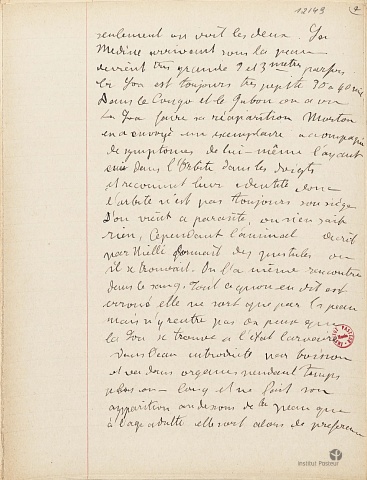 12149
seulement on voit les deux. La
Médine arrivant sous la peau
devient très grande 2 et 3 mètres parfois
la Loa est toujours très petite 30 à 40
Dans le Congo et le Gabon on a vu
la Loa faire sa réapparition
en a envoyé un exemplaire accompagné
de symptômes de lui-même l'ayant
dans l'orbite dans les doigts
et reconnut leur identité donc
l'orbite n'est pas toujours son siège
D'où vient ce parasite, on n'en sait
rien, Cependant l'animal décrit
par Nielly donnait des pustules où
il se trouvait. On l'a même rencontré
dans le sang. Tout ce qu'on en dit est
erroné elle ne sort que par la peau
mais n'y rentre pas on pense que
la Loa se trouve à l'état larvaire
dans l'eau introduite par boisson
et va dans organes pendant temps
plus ou long et ne fait son
apparition au dessous de la peau que
à l'age adulte elle sort alors de préférence
INSTITUT PASTEUR
Institut Pasteur